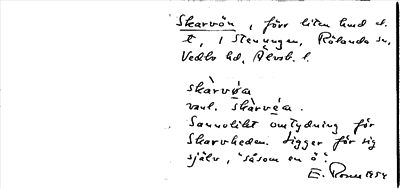 Skarvön, förr liten hmd el.
t, i Stenungen, Rölanda sn,
Vedbo hd, Älvsb. l.
skàrvö́a
vanl. skàrvéa.
Sannolikt omtydning för
Skarvheden. Ligger för sig
själv, "såsom en ö".
E. Rosen 1954